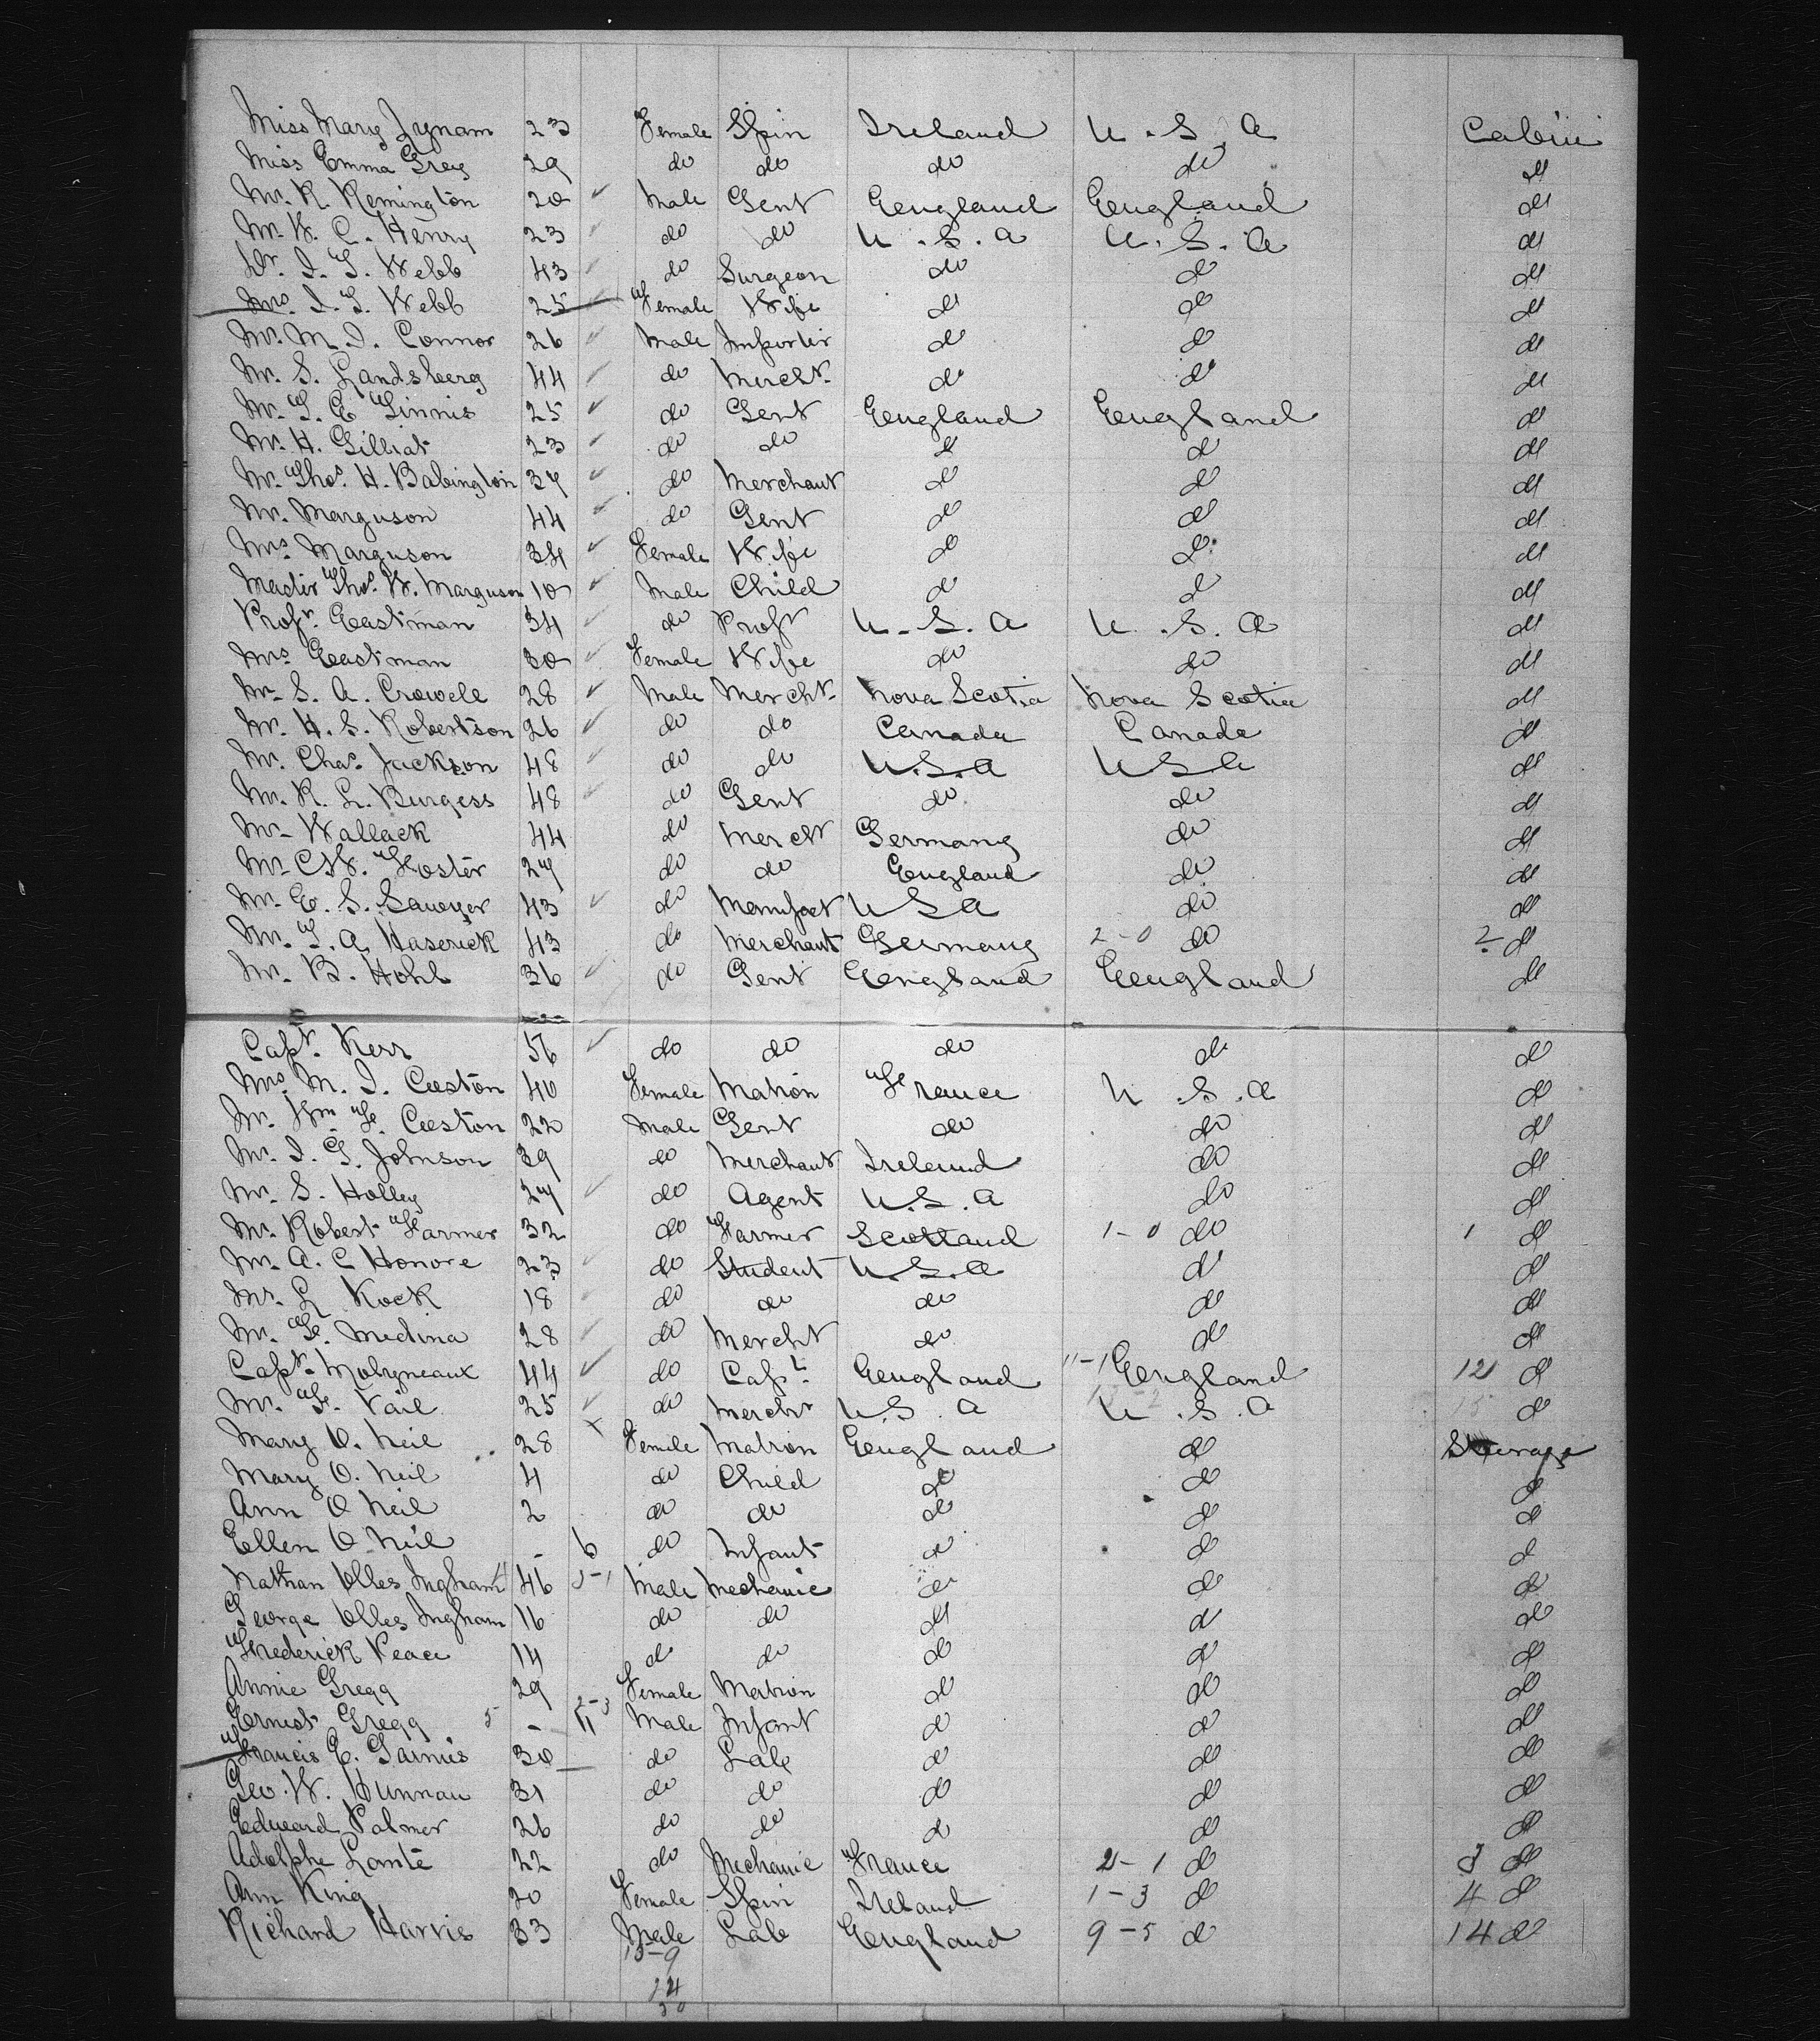 Miss Mary Lynam 23 Female Spin Ireland U.S.A Cabin
Miss Emma Grey 29 do do do do do
Mr. R. Remington 20 ✓ Male Gent England England do
Mr. W. C. Henry 23 ✓ do do U.S.A U.S.A do
Dr. I. T. Webb 43 ✓ do Surgeon do do do
Mrs. I. T. Webb 25 ✓ Female Wife do do do
Mr. M. I. Connor 26 ✓ Male Importer do do do
Mr. S. Landsberg 44 ✓ do Mercht. do do do
Mr. T. E. Tinnis 25 ✓ do Gent England England do
Mr. H. Gilliat 23 ✓ do do do do do
Mr. Thos. H. Babington 37 ✓ do Merchant do do do
Mr. Marguson 44 ✓ do Gent do do do
Mrs Marguson 34 ✓ Female Wife do do do
Master Thos. W. Marguson 10 ✓ Male Child do do do
Profr. Eastman 34 ✓ do Profr U.S.A U.S.A do
Mrs Eastman 30 ✓ Female Wife do do do
Mr S. A. Crowell 28 ✓ Male Mercht. Nova Scotia Nova Scotia do
Mr. H. S. Robertson 26 ✓ do do Canada Canada do
Mr. Chas. Jackson 48 ✓ do do U.S.A U S A do
Mr. R. L. Burgess 48 ✓ do Gent do do do
Mr Wallack 44 do Mercht Germany do do
Mr C W. Foster 27 do do England do do
Mr. E. S. Sawyer 43 ✓ do Manufact U S A do do
Mr. T. A. Haserick 43 do Merchant Germany 2-0 do 2 do
Mr. B. Hohl 36 ✓ do Gent England England do
Capt. Kerr 56 ✓ do do do do do
Mrs. M. I. Ceeston 40 Female Matron France U.S.A do
Mr. Wm. F. Ceeston 22 Male Gent do do do
Mr. I. G. Johnson 39 do Merchant Ireland do do
Mr. S. Holley 27 ✓ do Agent U.S.A do do
Mr. Robert Farmer 32 do Farmer Scotland 1-0 do 1 do
Mr. A. C Honore 23 ✓ do Student U.S.A do do
Mr. L Kock 18 do do do do do
Mr. F. Medina 28 ✓ do Mercht do do do
Capt. Molyneaux 44 ✓ do Capt. England 11-1 England 12 do
Mr. F. Vail 25 ✓ do Mercht U.S.A U.S.A 15 do
Mary O. Neil 28 Female Matron England do Steerage
Mary O. Neil 4 do Child do do do
Ann O Neil 2 do do do do do
Ellen O. Neil - 6 do Infant do do do
Nathan Illingham 46 Male Mechanic do do do
George Ingham 16 do do do do do
Frederick Peace 14 do do do do do
Annie Gregg 29 Female Matron do do do
Ernest Gregg 5 - 2-3 11 Male Infant do do do
Francis E. 30 do Lab do do do
Geo. W. Hunnan 31 do do do do do
Edward Palmer 26 do do do do do
Adolphe Lomté 22 do Mechanic France 2-1 do 3 do
Ann King 20 Female Spin Ireland 1-3 do 4 do
Richard Harris 33 Male Lab England 9-5 do 14 do
15-9
24
30